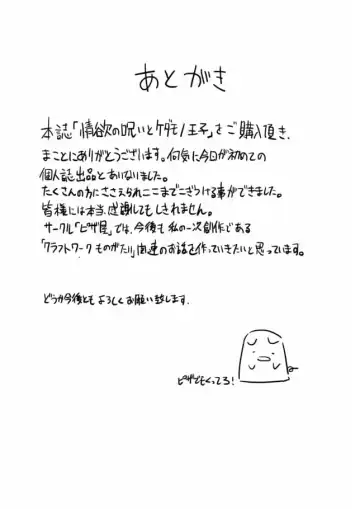 あとがき
本誌「情欲の呪いとケダモノ王子」をご購入頂き、
まことにありがとうございます。何気に今日が初めての
個人誌出品とあいなりました。
たくさんの方にささえられここまでこぎつける事ができました。
皆様には本当、感謝してもしきれません。
サークル「ピザ屋」では、今後も私の一次創作である
「クラフトワークものがたり」関連のお話を作っていきたいと思っています。
どうか今後ともよろしくお願い致します。
ピザでもくってろ!